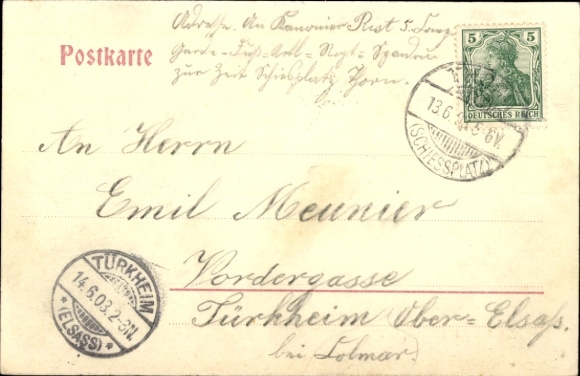 Adresse. An Kanonier Rest 5. Comp
Garde-Fuß-Artl-Regt-Spandau
zur Zeit Schießplatz Thorn.
Postkarte
5 5
DEUTSCHES REICH
13.6.03 5-6V.
(SCHIESSPLATZ)
An Herrn
Emil Meunier
Vordergasse
Türkheim Ober-Elsaß.
bei Colmar
TÜRKHEIM
14.6.03. 2-3N.
* (ELSASS) *